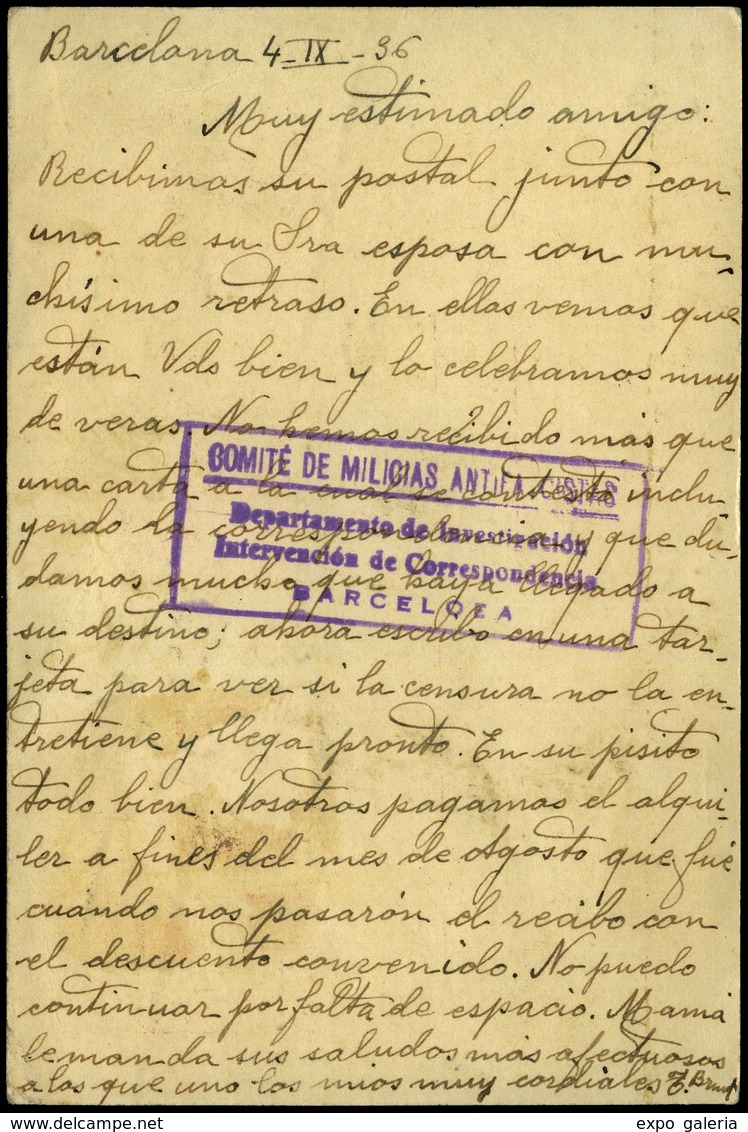 Barcelona 4-IX-36
Muy estimado amigo:
Recibimos su postal junto con
una de su Sra esposa con mu-
chísimo retraso. En ellas vemos que
están Vds bien y lo celebramos muy
de veras. No hemos recibido más que
una carta a la cual se contestó inclu-
yendo la correspondencia y que du-
damos mucho que haya llegado a
su destino; ahora escribo en una tar-
jeta para ver si la censura no la en-
tretiene y llega pronto. En su pisito
todo bien. Nosotros pagamos el alqui-
ler a fines del mes de Agosto que fué
cuando nos pasarón el recibo con
el descuento convenido. No puedo
continuar por falta de espacio. Mamá
le manda sus saludos más afectuosos
a los que uno los mios muy cordiales
COMITÉ DE MILICIAS ANTIFASCISTAS
Departamento de Investigación
Intervención de Correspondencia
BARCELOEA
expo galeria